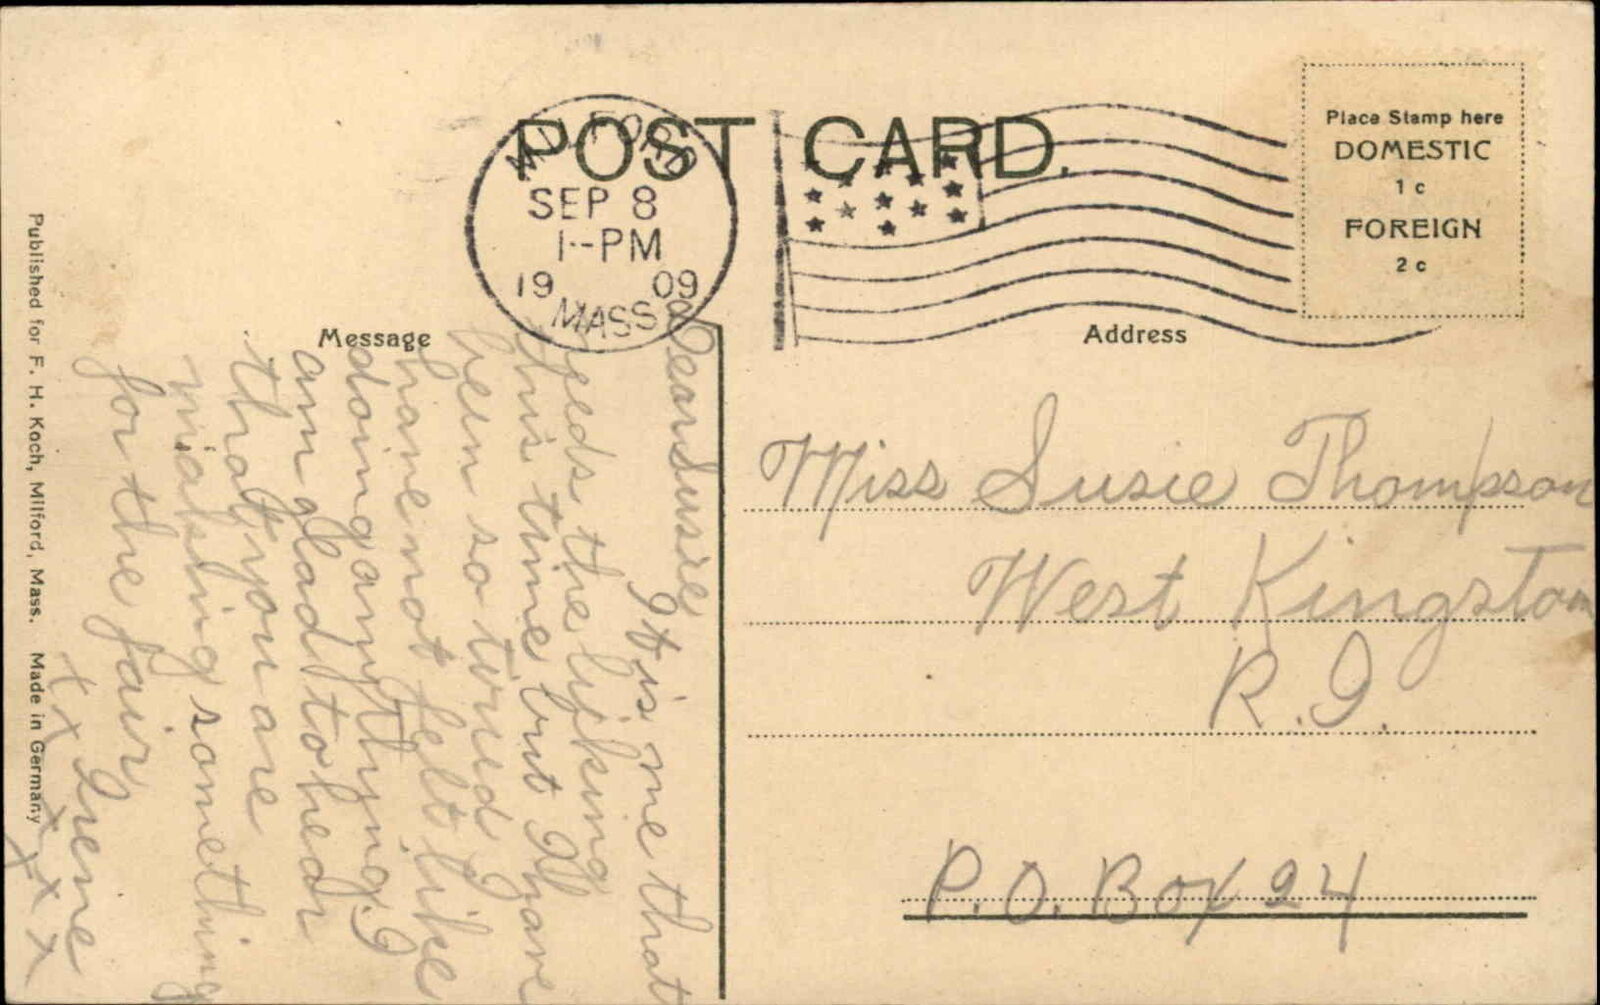 POST CARD.
MILFORD
SEP 8
1-PM
19 09
MASS
Place Stamp here
DOMESTIC
1 c
FOREIGN
2 c
Message
Address
Dear Susie
It is me that
needs the lijking
this time but I have
been so tired I
have not felt like
doing anything. I
am glad to hear
that you are
making something
for the fair
x x Irene
x x x x
Miss Susie Thompson
West Kingston
R.I.
P.O. Box 24
Published for F. H. Koch, Milford, Mass. Made in Germany